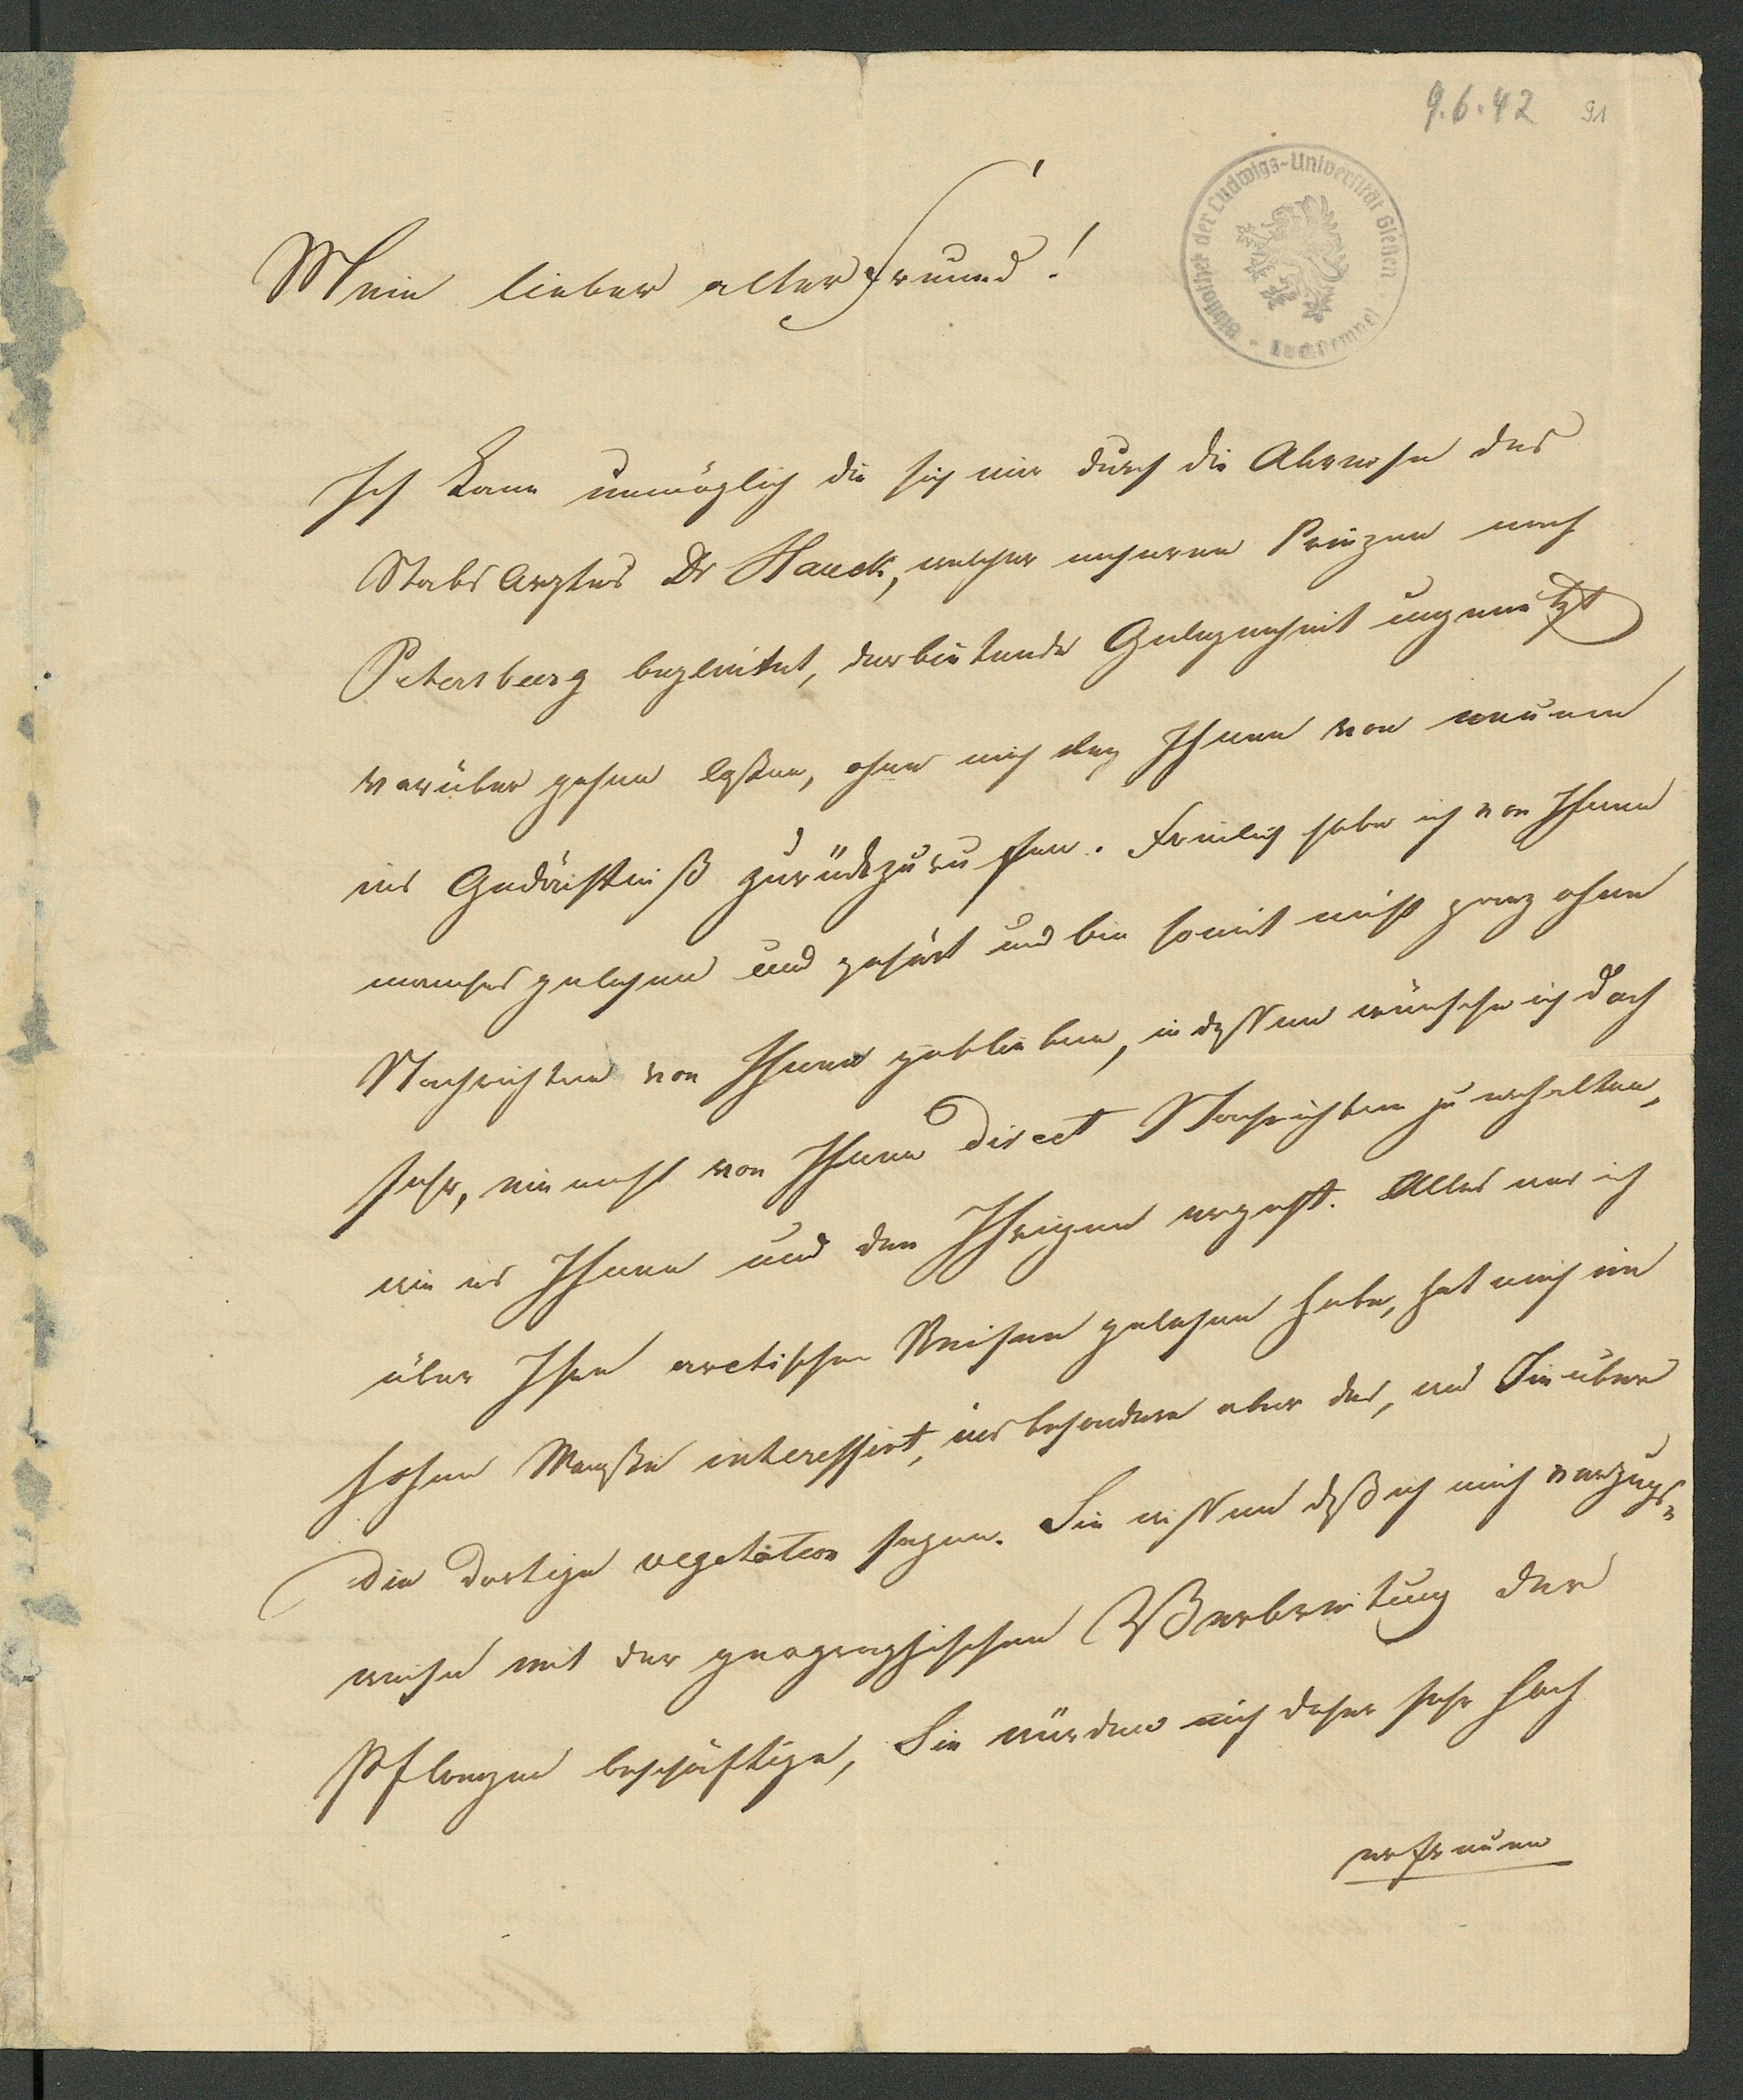 9.6.42 91
Bibliothek der Ludwigs-Universität Gießen
Mein lieber alter Freund!
Ich kann unmöglich die sich mir durch die Abreise des
Stabs Arztes Dr Hauck, welcher unseren Prinzen nach
Petersburg begleitet, darbietende Gelegenheit ungenutzt
vorüber gehen laßen, ohne mich bey Ihnen von neuem
ins Gedächtniß zurückzurufen. Freilich habe ich von Ihnen
manches gelesen und gehört und bin somit nicht ganz ohne
Nachrichten von Ihnen geblieben, indessen wünsche ich doch
sehr, einmahl von Ihnen direct Nachrichten zu erhalten,
wie es Ihnen und den Ihrigen ergeht. Alles was ich
über Ihre arctischen Reisen gelesen habe, hat mich im
hohen Maaße interessirt, ins besondere aber das, was Sie über
die dortige vegetation sagen. Sie wissen daß ich mich vorzugs-
weise mit der geographischen Verbreitung der
Pflanzen beschäftige, Sie würden mich daher sehr hoch
erfreuen